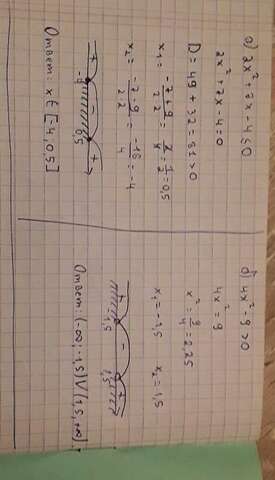 а) 2x² + 7x - 4 ≤ 0
2x² + 7x - 4 = 0
D = 49 + 32 = 81 > 0
x₁ = (-7 + 9)/(2·2) = 2/4 = 1/2 = 0,5
x₂ = (-7 - 9)/(2·2) = -16/4 = -4
+ - +
-4 0,5
Ответ: x ∈ [-4, 0,5]
б) 4x² - 9 > 0
4x² = 9
x² = 9/4 = 2,25
x₁ = -1,5 x₂ = 1,5
+ - +
-1,5 1,5
Ответ: (-∞; -1,5) V (1,5, +∞).